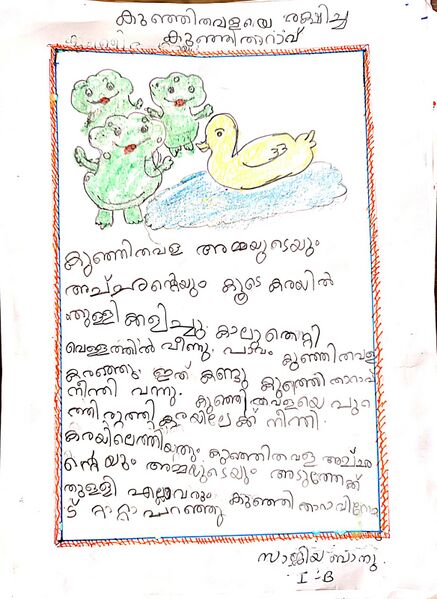 കുഞ്ഞിതവളയെ രക്ഷിച്ച
കുഞ്ഞിതാറാവ്
കുഞ്ഞിതവള അമ്മയുടെയും
അച്ഛന്റെയും കൂടെ കരയിൽ
തുള്ളിക്കളിച്ചു. കാലുതെറ്റി
വെള്ളത്തിൽ വീന്നു. പാവം കുഞ്ഞിതവള
കരഞ്ഞു. ഇത് കണ്ടു കുഞ്ഞിതാറാവ്
നീന്തി വന്നു. കുഞ്ഞിതവളയെ പുറ
ത്തിരുത്തി കരയിലേക്ക് നീന്തി.
കരയിലെത്തിയതും കുഞ്ഞിതവള അച്ഛ
ന്റെയും അമ്മയുടെയും അടുത്തേക്ക്
തുള്ളി എല്ലാവരും കുഞ്ഞി താറാവിനോ
ട് റ്റാറ്റാ പറഞ്ഞു
സാജിയ ബാനു.
I-B